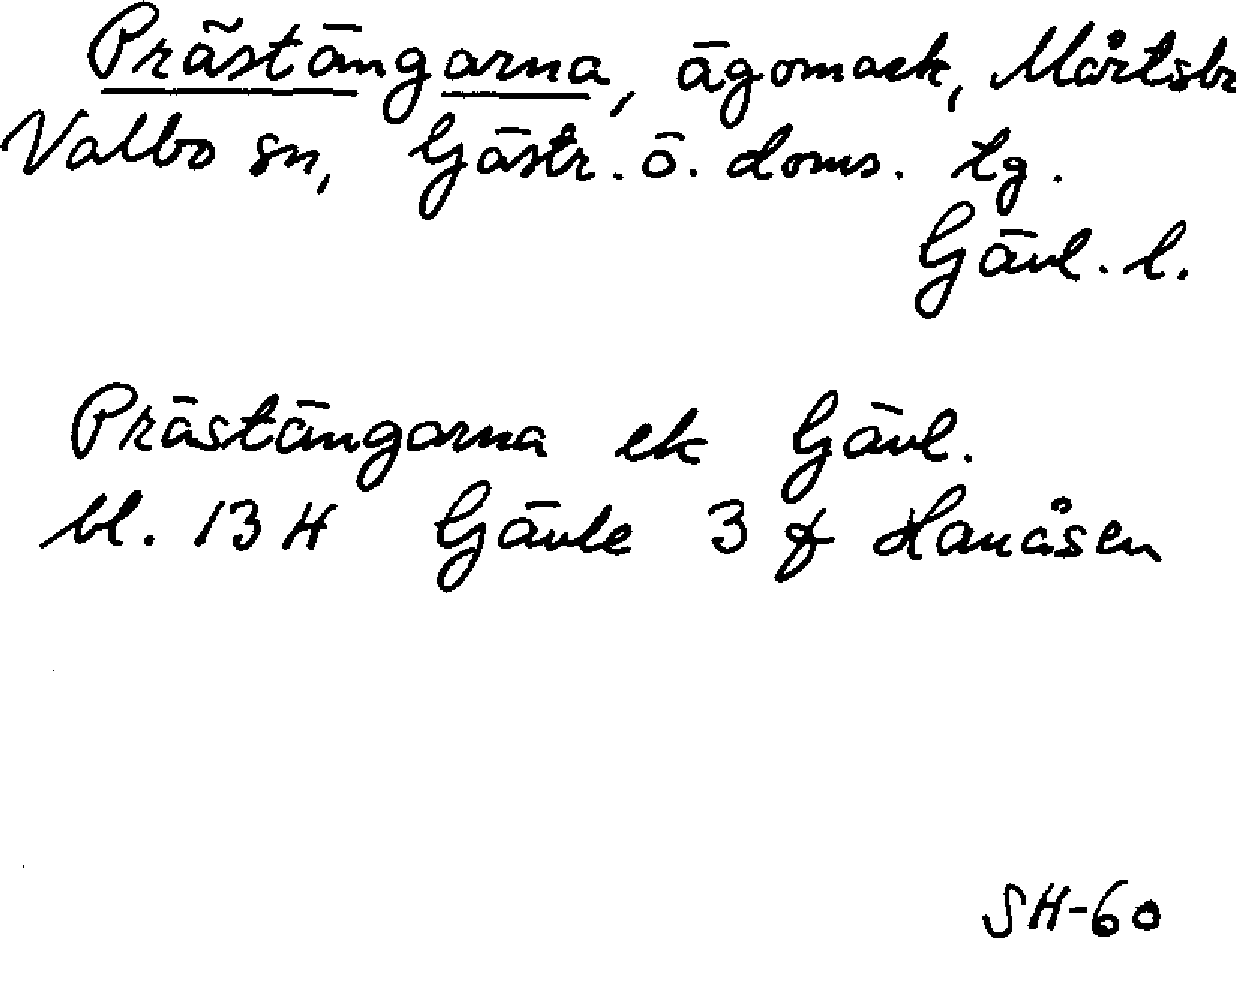 Prästängarna, ägomark, Mårtsbo
Valbo sn, Gästr. ö. doms. tg.
Gävl. l.
Prästängarna ek Gävl.
bl. 13 H Gävle 3 f Hanåsen
SH-60